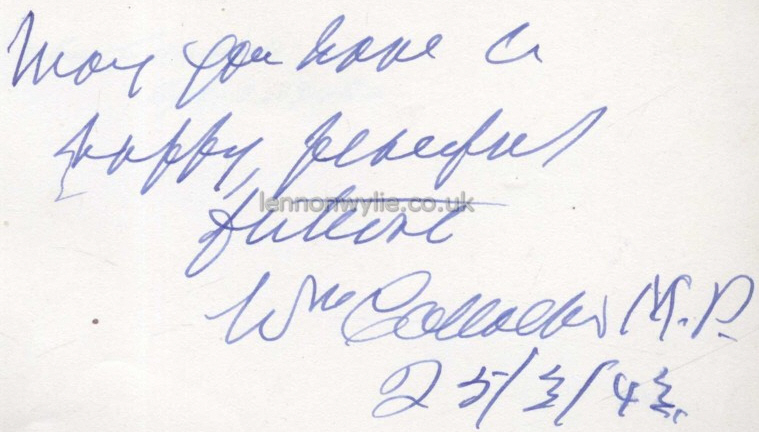 May you have a
happy, peaceful
future
lennonwylie.co.uk
Wm Gallacher M.P.
25/3/43.